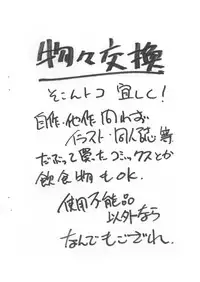 物々交換
そこんトコ 宜しく!
自作・他作 問わず
イラスト・同人誌 等
だぶって買ったコミックスとか
飲食物もOK.
使用不能品
以外なら
なんでもござれ.